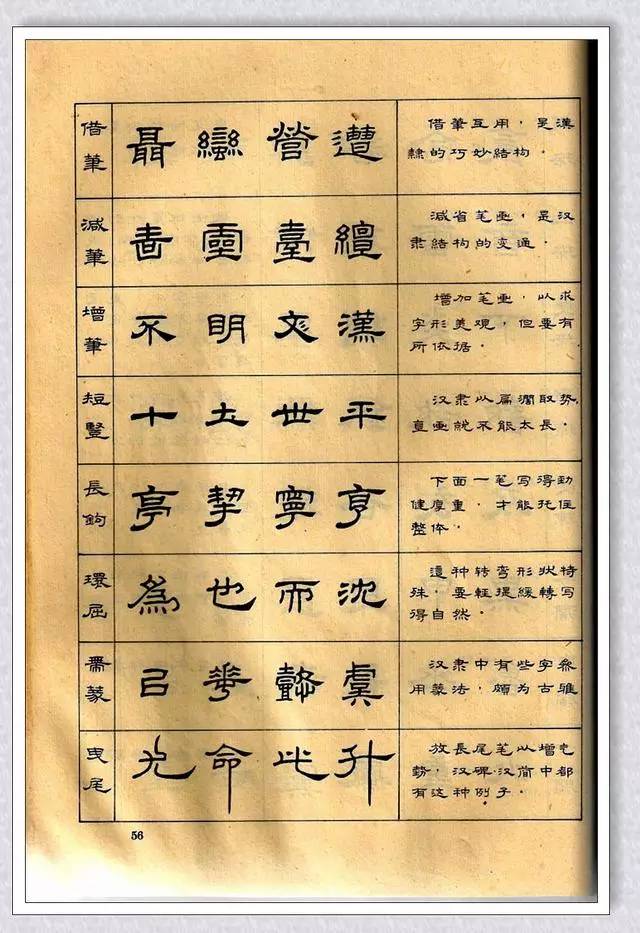 借筆
聶 營 遭
借筆互用，是漢
隸的巧妙結构．
減筆
靈 臺 繵
減省笔画，是汉
隶結构的变通．
增筆
不 明 文 漢
增加笔画，以求
字形美观，但要有
所依据．
短豎
十 土 世 平
汉隶以扁濶取势，
直画就不能太長．
長鉤
亭 挈 寧 亨
下面一笔写得劲
健厚重，才能托住
整体．
環屈
為 也 而 沈
這种转弯形状特
殊，要輕提緩轉写
得自然．
篆
華 懿 虞
汉隶中有些字叅
用篆法，頗为古雅
曳尾
光 命 此 升
放長尾笔以增
勢，汉碑汉简中都
有这种例子．
56